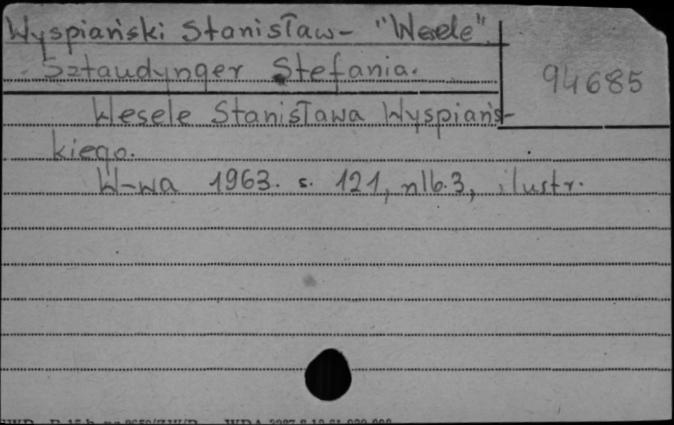 Wyspiański Stanisław - "Wesele"
Sztaudynger Stefania.
94685
Wesele Stanisława Wyspiańs-
kiego.
W-wa 1963. s. 121, nlb.3, ilustr.